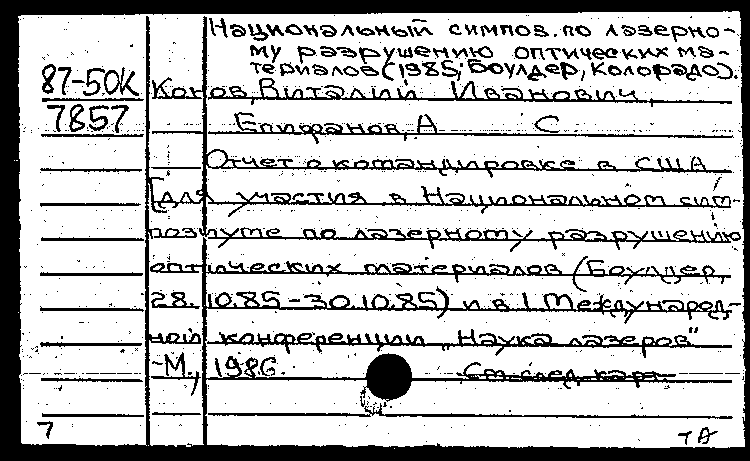 Национальный симпоз. по лазерно-
му разрушению оптических ма-
териалов (1985; Боулдер, Колорадо).
87-50К
7857
Конов, Виталий Иванович,
Епифанов, А С
Отчет о командировке в США
[для участия в Национальном сим-
позиуме по лазерному разрушению
оптических материалов (Боулдер,
28.10.85-30.10.85) и в I Международ-
ной конференции „Наука лазеров"
-М., 1986.
См. след. карт.
7